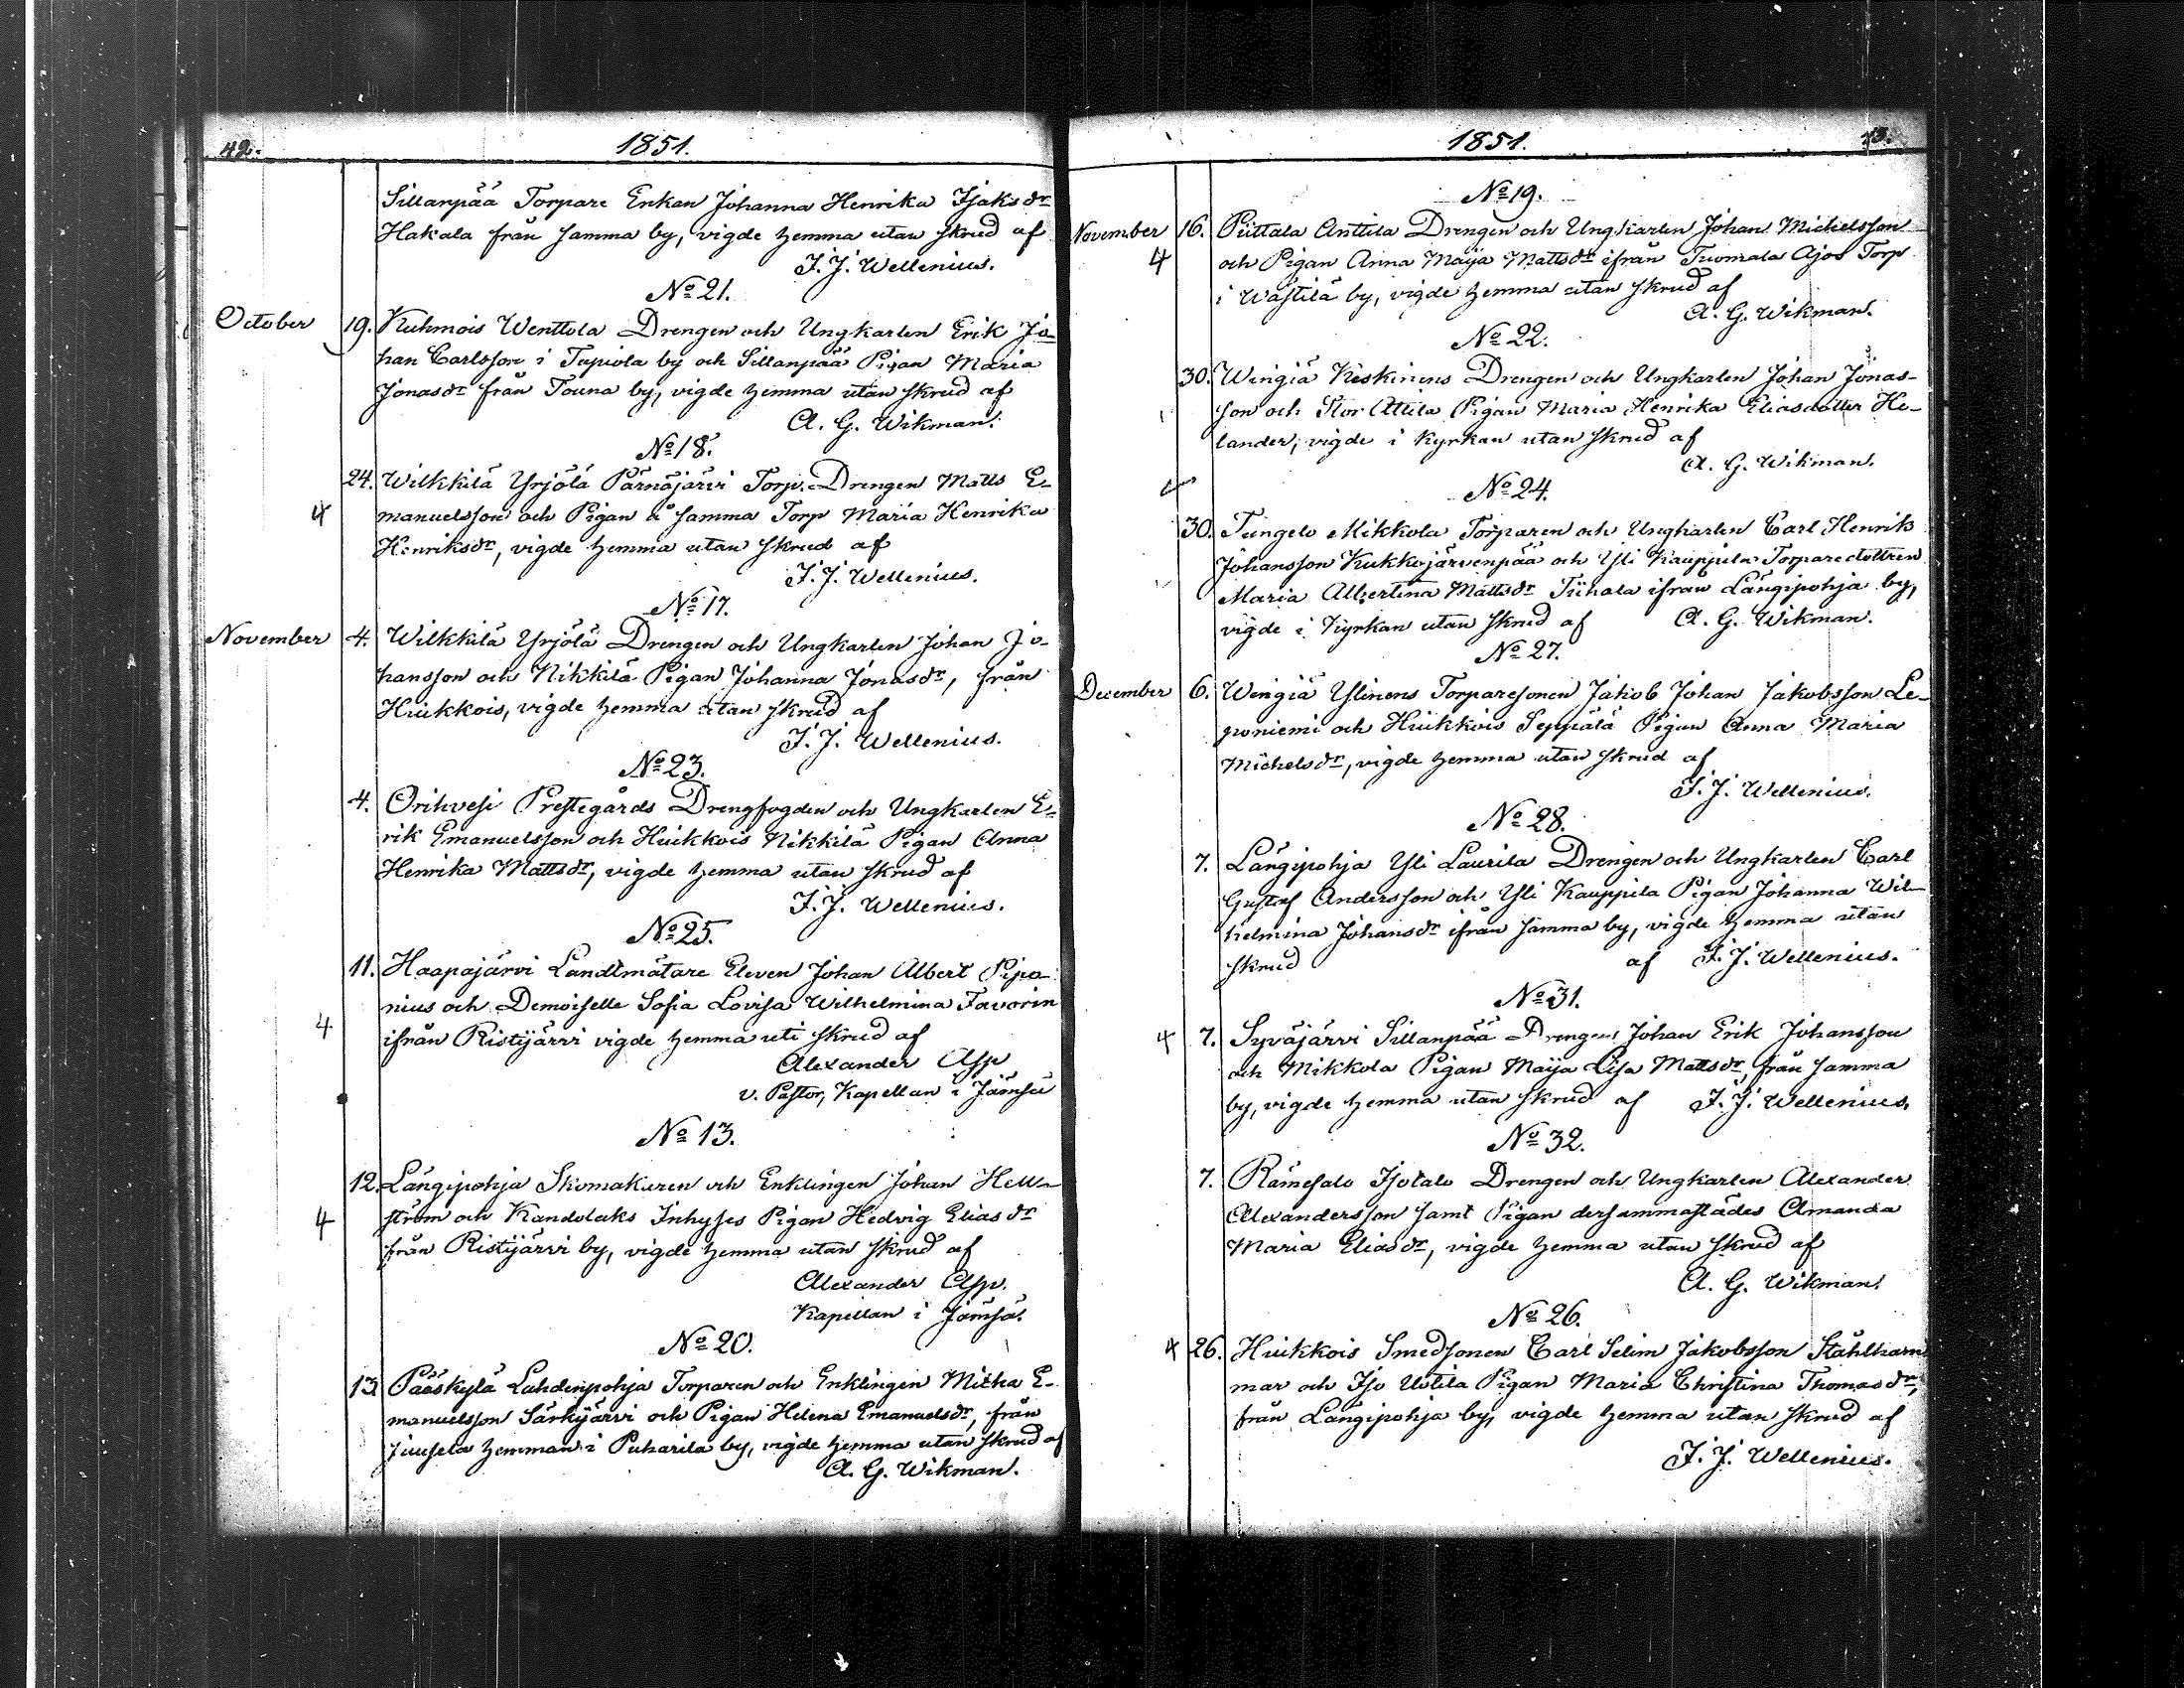 42.
1851.
Sillanpää Torpare Enkan Johanna Henrika Isaksdr
Hakala från samma by, vigde hemma utan skrud af
F. J. Wellenius.
No 21.
October 19. Kuhmois Wenttola Drengen och Ungkarlen Erik Jo-
han Carlsson i Tapiola by och Sillanpää Pigan Maria
Jonasdr från Touna by, vigde hemma utan skrud af
A. G. Wikman.
No 18.
24. Wilkkilä Yrjölä Pärnäjärvi Torp. Drengen Matts E-
4 manuelsson och Pigan å samma Torp Maria Henrika
Henriksdr, vigde hemma utan skrud af
F. J. Wellenius.
No 17.
November 4. Wilkkilä Yrjölä Drengen och Ungkarlen Johan Jo-
hansson och Nikkilä Pigan Johanna Jonasdr, från
Hiukkois, vigde hemma utan skrud af
F. J. Wellenius.
No 23.
4. Orihvesi Prestegårds Drengfogden och Ungkarlen E-
rik Emanuelsson och Hiukkois Nikkilä Pigan Anna
Henrika Mattsdr, vigde hemma utan skrud af
F. J. Wellenius.
No 25.
11. Haapajärvi Landtmätare Eleven Johan Albert Pipo-
nius och Demoiselle Sofia Lovisa Wilhelmina Favorin
4 ifrån Ristijärvi vigde hemma uti skrud af
Alexander Asp
v. Pastor, Kapellan i Jämsä
No 13.
12. Längipohja Skomakaren och Enklingen Johan Hell-
4 ström och Kandolaks Inhyses Pigan Hedvig Eliasdr
från Ristijärvi by, vigde hemma utan skrud af
Alexander Asp.
Kapellan i Jämsä.
No 20.
13. Pääskylä Lahdenpohja Torparen och Enklingen Mickel E-
manuelsson Särkijärvi och Pigan Helena Emanuelsdr, från
Juusela hemman i Puharila by, vigde hemma utan skrud af
A. G. Wikman.
1851.
43.
No 19.
November 16. Pittala Anttila Drengen och Ungkarlen Johan Michelsson
4 och Pigan Anna Maija Mattsdr ifrån Tuomala Ajos Torp
i Wästilä by, vigde hemma utan skrud af
A. G. Wikman.
No 22.
30. Wingiä Keskinens Drengen och Ungkarlen Johan Jonas-
son och Stor Attila Pigan Maria Henrika Eliasdotter He-
lander, vigde i Kyrkan utan skrud af
A. G. Wikman.
No 24.
30. Tungelo Mikkola Torparen och Ungkarlen Carl Henrik
Johansson Kukkojärvenpää och Yli Kauppila Torparedottren
Maria Albertina Mattsdr Tiihala ifrån Längipohja by,
vigde i Kyrkan utan skrud af A. G. Wikman.
No 27.
December 6. Wingiä Ylinens Torparesonen Jakob Johan Jakobsson Le-
poniemi och Hiukkois Seppälä Pigan Anna Maria
Michelsdr, vigde hemma utan skrud af
F. J. Wellenius.
No 28.
7. Längipohja Yli Laurila Drengen och Ungkarlen Carl
Gustaf Andersson och Yli Kauppila Pigan Johanna Wil-
helmina Johansdr ifrån samma by, vigde hemma utan
skrud af F. J. Wellenius.
No 31.
4 7. Syväjärvi Sillanpää Drengen Johan Erik Johansson
och Mikkola Pigan Maija Lisa Mattsdr, från samma
by, vigde hemma utan skrud af F. J. Wellenius.
No 32.
7. Rämesalo Isotalo Drengen och Ungkarlen Alexander
Alexandersson samt Pigan dersammastädes Amanda
Maria Eliasdr, vigde hemma utan skrud af
A. G. Wikman.
No 26.
4 26. Hiukkois Smedsonen Carl Selim Jakobsson Stålham-
mar och Iso Uotila Pigan Maria Christina Thomasdr,
från Längipohja by, vigde hemma utan skrud af
F. J. Wellenius.